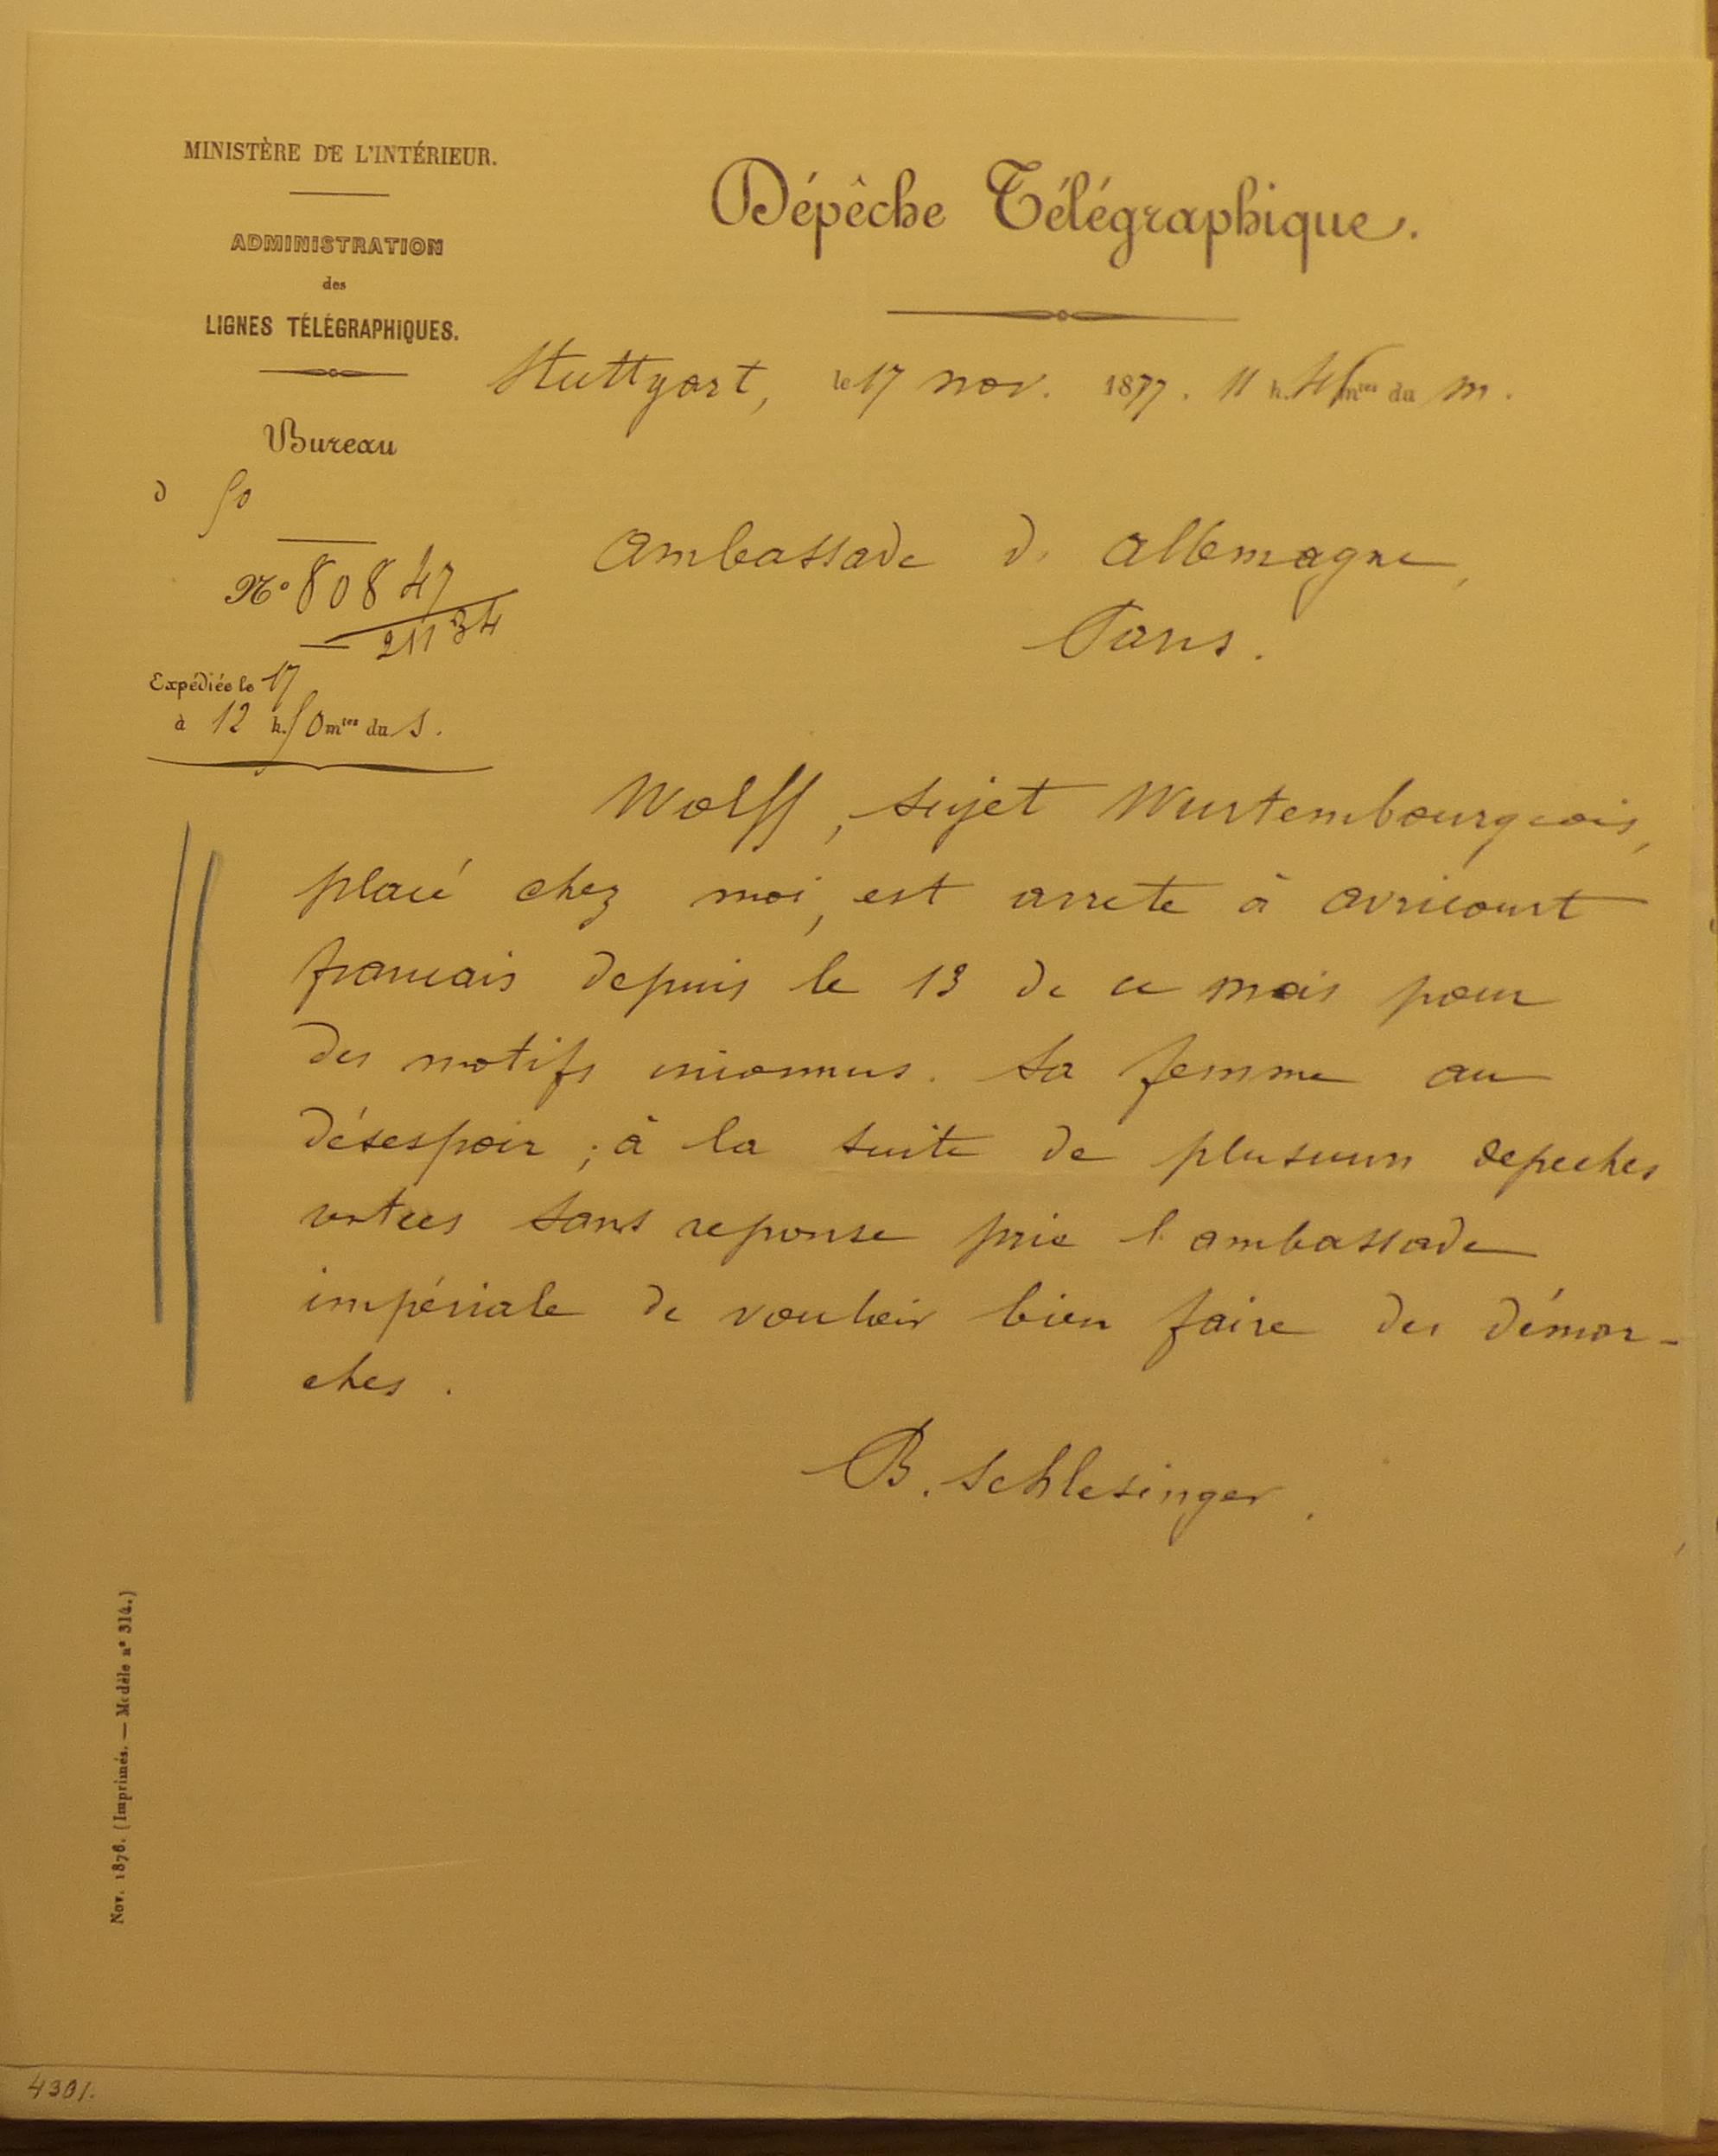 MINISTÈRE DE L'INTÉRIEUR.
ADMINISTRATION
des
LIGNES TÉLÉGRAPHIQUES.
Dépêche Télégraphique.
Stuttgart, le 17 nov. 1877. 11 h. 45 mtes du m.
Bureau
d 50
No 80847
21134
Expédiée le 17
à 12 h. 50 mtes du s.
Ambassade d'allemagne,
Paris.
Wolff, sujet Wurtembourgeois,
placé chez moi, est arrete à avricourt
francais depuis le 13 de ce mois pour
des motifs inconnus. sa femme au
désespoir; à la suite de plusieurs depeches
sans reponse prie l'ambassade
impériale de vouloir bien faire des démar-
ches.
B. Schlesinger.
Nov. 1876. (Imprimés. — Modèle n° 314.)
4301.